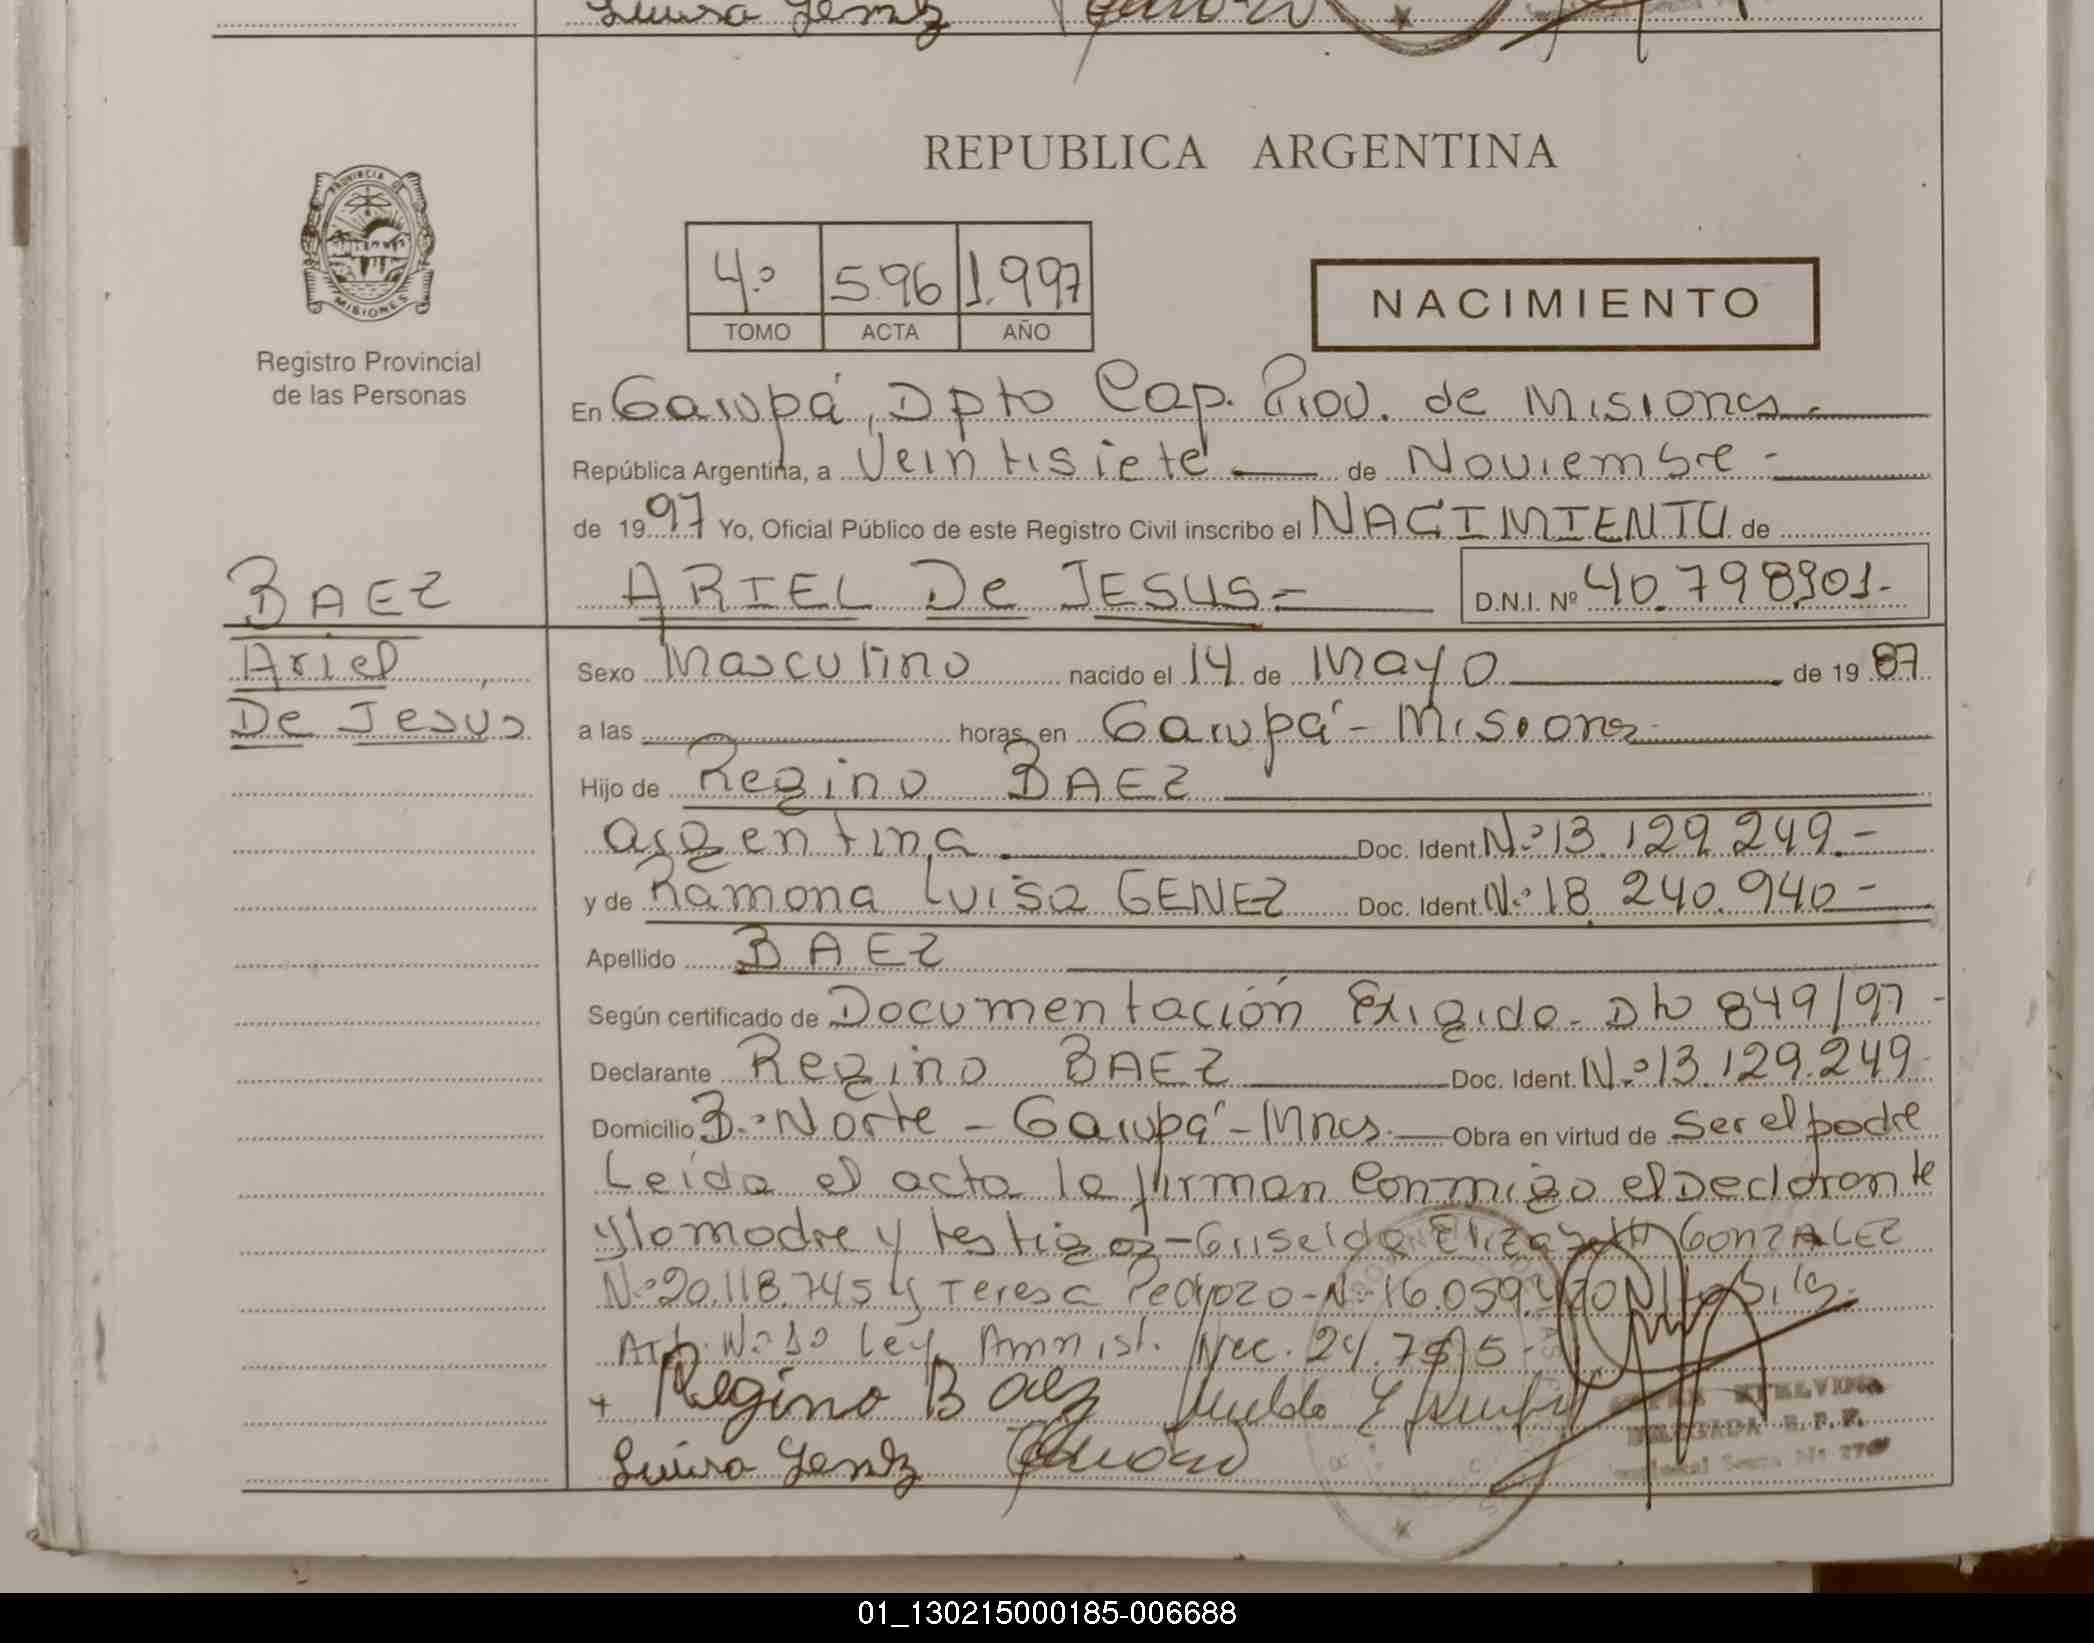 Luisa Genez
REPUBLICA ARGENTINA
PROVINCIA DE
MISIONES
Registro Provincial
de las Personas
4.º 596 1.997
TOMO ACTA AÑO
NACIMIENTO
En Garupá, Dpto Cap. Prov. de Misiones.-
República Argentina, a Veintisiete de Noviembre -
de 1997 Yo, Oficial Público de este Registro Civil inscribo el NACIMIENTO de
BAEZ
ARIEL De JESUS - D.N.I. Nº 40.798901-
Ariel
De Jesus
Sexo Masculino nacido el 14 de Mayo de 1987
a las horas en Garupá - Misiones
Hijo de Regino BAEZ
argentina Doc. Ident. N.º 13.129.249.-
y de Ramona Luisa GENEZ Doc. Ident. N.º 18.240.940 -
Apellido BAEZ
Según certificado de Documentación Exigida. Dto 849/97 -
Declarante Regino BAEZ Doc. Ident. N.º 13.129.249
Domicilio B.º Norte - Garupá - Mnes. Obra en virtud de Ser el padre
Leida el acta la firman Conmigo el Declarante
y la madre y testigos - Griselda Elizabeth GONZALEZ
N.º 20.118.745 y Teresa Pedrozo - N.º 16.059.
Art. N.º 10 Ley Amnist. Nac. 24.755 -
+ Regino Baez
Luisa Genez
01_130215000185-006688